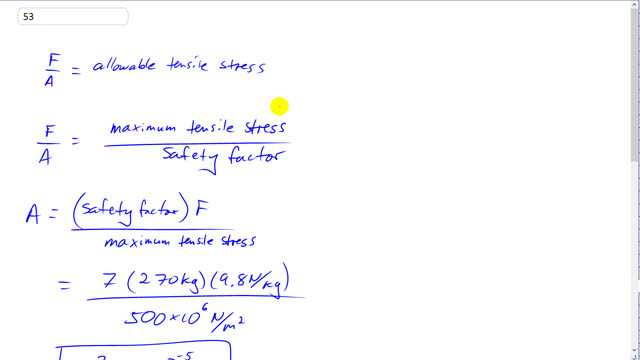 53
F/A = allowable tensile stress
F/A = maximum tensile stress / safety factor
A = (safety factor) F / maximum tensile stress
= 7 (270 kg)(9.8 N/kg) / 500 × 10^6 N/m^2
-5